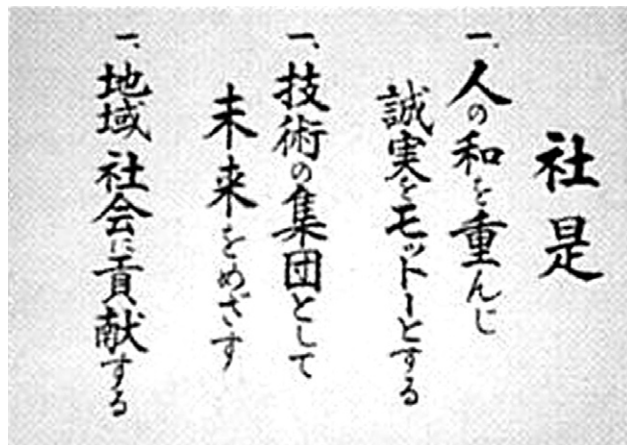 社是
一、人の和を重んじ
誠実をモットーとする
一、技術の集団として
未来をめざす
一、地域社会に貢献する